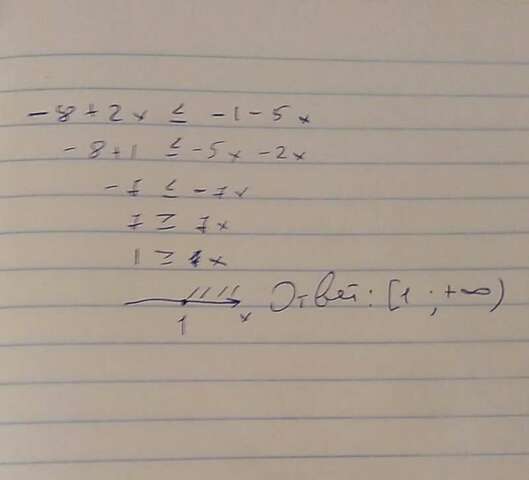 -8+2x ≤ -1-5x
-8+1 ≤ -5x-2x
-7 ≤ -7x
7 ≥ 7x
1 ≥ x
1 x Ответ: [1; +∞)